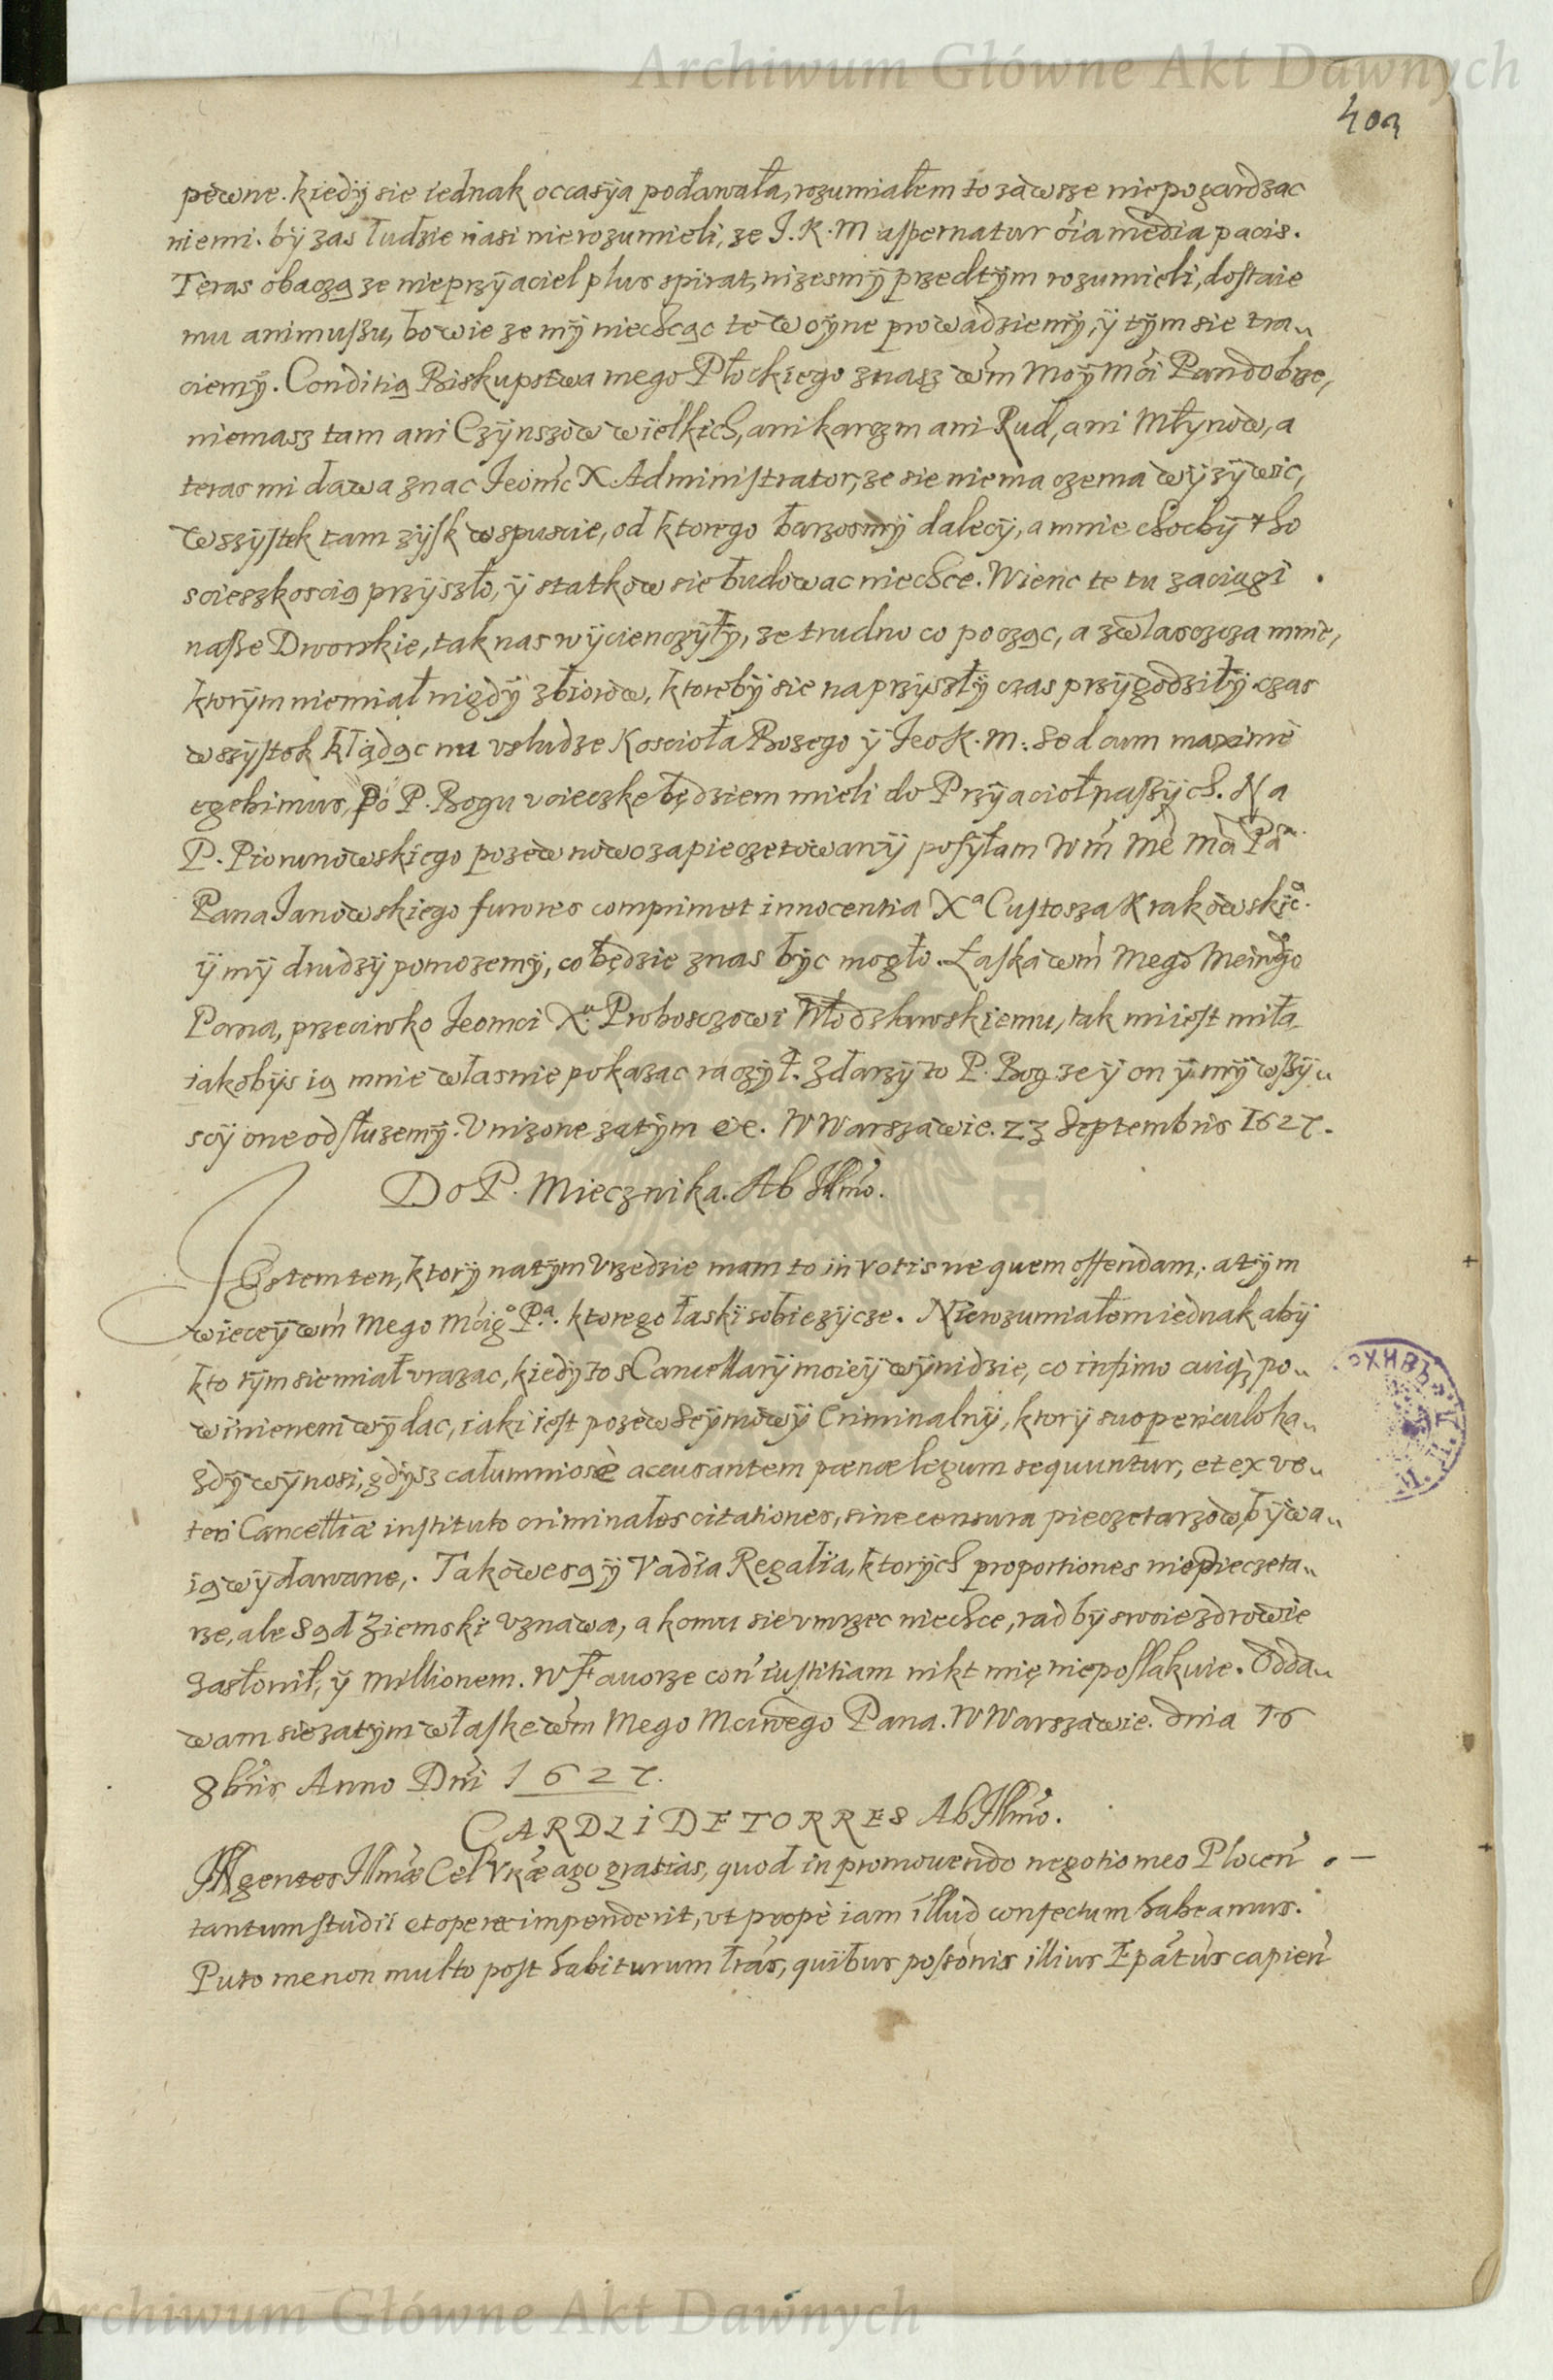 Archiwum Główne Akt Dawnych
403
pewne. kiedÿ sie iednak occasÿa podawała, rozumiałem to zawsze niepogardzac
niemi. bÿ zas ludzie nasi nierozumieli, ze J.K.M aspernatur oĩa media pacis.
Teras obaczą ze nieprzÿaciel plus spirat, nizesmÿ przedtÿm rozumieli, dostaie
mu animuszu, bo wie ze mÿ niechcąc te woÿne prowadziemÿ, ÿ tÿm sie tra„
ciemÿ. Conditią Biskupstwa mego Płockiego znasz wm̃ Moÿ Mći Pan dobrze,
niemasz tam ani Czÿnszow wielkich, ani karczm ani Rud, ani Młynow, a
teras mi dawa znac Jeomc̃ X. Administrator, ze sie niema czema wÿzÿwic,
wszÿstek tam zÿsk w spuscie, od ktorego barzosmÿ dalecÿ, a mnie chocbÿ tho
scieszkoscią przÿszło, ÿ statkow sie budowac niechce. Wienc te tu zaciągi
nasze Dworskie, tak nas wÿcienczÿłÿ, ze trudno co począc, a zwlasczcza mnie,
ktorÿm niemiał nigdÿ zbiorow, ktorebÿ sie na przÿszłÿ czas przÿgodziłÿ czas
wszÿstek kładąc na usludze Koscioła Bozego ÿ Jeo K.M: Sed cum maxime
egebimus, Po P. Bogu ucieczke będziem mieli do Przÿacioł naszÿch. Na
P. Piorunowskiego pozew nowo zapieczetowanÿ posÿłam Wm̃ Me Ma Pa̅
Pana Janowskiego furores comprimet innocentia Xᵃ Custosza Krakowskieᵒ
ÿ mÿ drudzÿ pomozemÿ, co będzie znas bÿc mogło. Łaska wm̃ Mego Mciwgo
Pana, przeciwko Jeomci Xᵘ Proboszczowi Włodzławskiemu, tak mi iest miła
iakobÿs ią mnie własnie pokazac raczÿł. Zdarzÿ to P. Bog ze ÿ on ÿ mÿ wszÿ„
scÿ one odsłuzemÿ. Unizone zatÿm etc. W Warszawie. 23 Septembris 1627.
Do P. Miecznika. Ab Illmo.
Jestem ten, ktorÿ na tÿm Urzedzie mam to in votis ne quem offendam, a tÿm
wieceÿ wm̃ Mego Mćigᵒ Pᵃ. ktorego łaski sobie zÿcze. Nierozumiałem iednak abÿ
kto tÿm sie miał urazac, kiedÿ to s Cancellarÿ moieÿ wÿnidzie, co infimo cuiq̃ po„
winienem wÿdac, iaki iest pozew Seÿmowÿ Criminalnÿ, ktorÿ suo periculo ka„
zdÿ wÿnosi, gdÿsz calumniose accusantem pœnæ legum sequuntur, et ex ve„
teri Cancellr̃iæ instituto criminales citationes, sine censura pieczetarzow, bÿwa„
ią wÿdawane,. Takowe są ÿ Vadia Regalia, ktorÿch proportiones nie pieczeta„
rze, ale Sąd Ziemski uznawa, a komu sie umrzec niechce, rad bÿ swoie zdrowie
zasłonił, ÿ Millionem. W Fauorze con̄ iustitiam nikt mię nie poslakuie. Odda„
wam sie zatÿm w łaske wm̃ Mego Mciwego Pana. W Warszawie. dnia 16
8bris Anno Dni 1627.
CARDLI DE TORRES Ab Illmo.
INgentes Illmæ Cel Vræ ago gratias, quod in promouendo negotio meo Plocen̄
tantum studii et operæ impenderit, ut prope iam illud confectum habeamus.
Puto me non multo post habiturum lr̃as, quibus possõnis illius Ep̃atus capien̄
Archiwum Główne Akt Dawnych